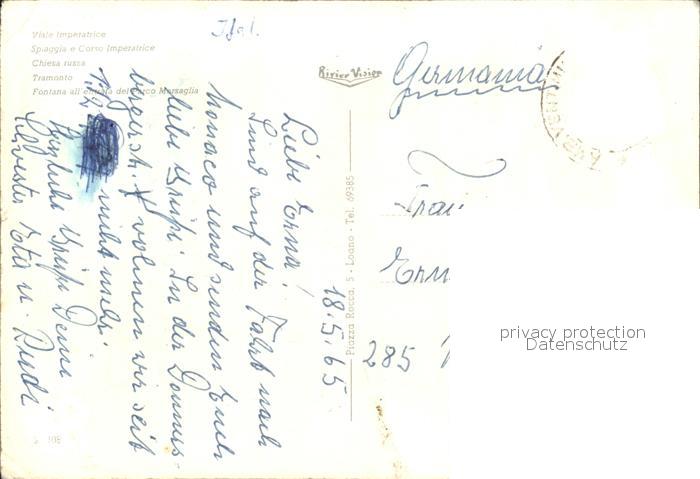 Viale Imperatrice
Spiaggia e Corso Imperatrice
Chiesa russa
Tramonto
Fontana all'entrata del Parco Marsaglia
Ital.
Riviera Vision
Germania
Piazza Rocca, 5 - Loano - Tel. 69385
18.5.65
Liebe Erna!
Sind auf der Fahrt nach
Monaco und senden Euch
liebe Grüße. In der Donners-
bergerstr. wohnen wir seit
nicht mehr.
Herzliche Grüße Deine
u. Rudi
Frau
285
108
privacy protection
Datenschutz